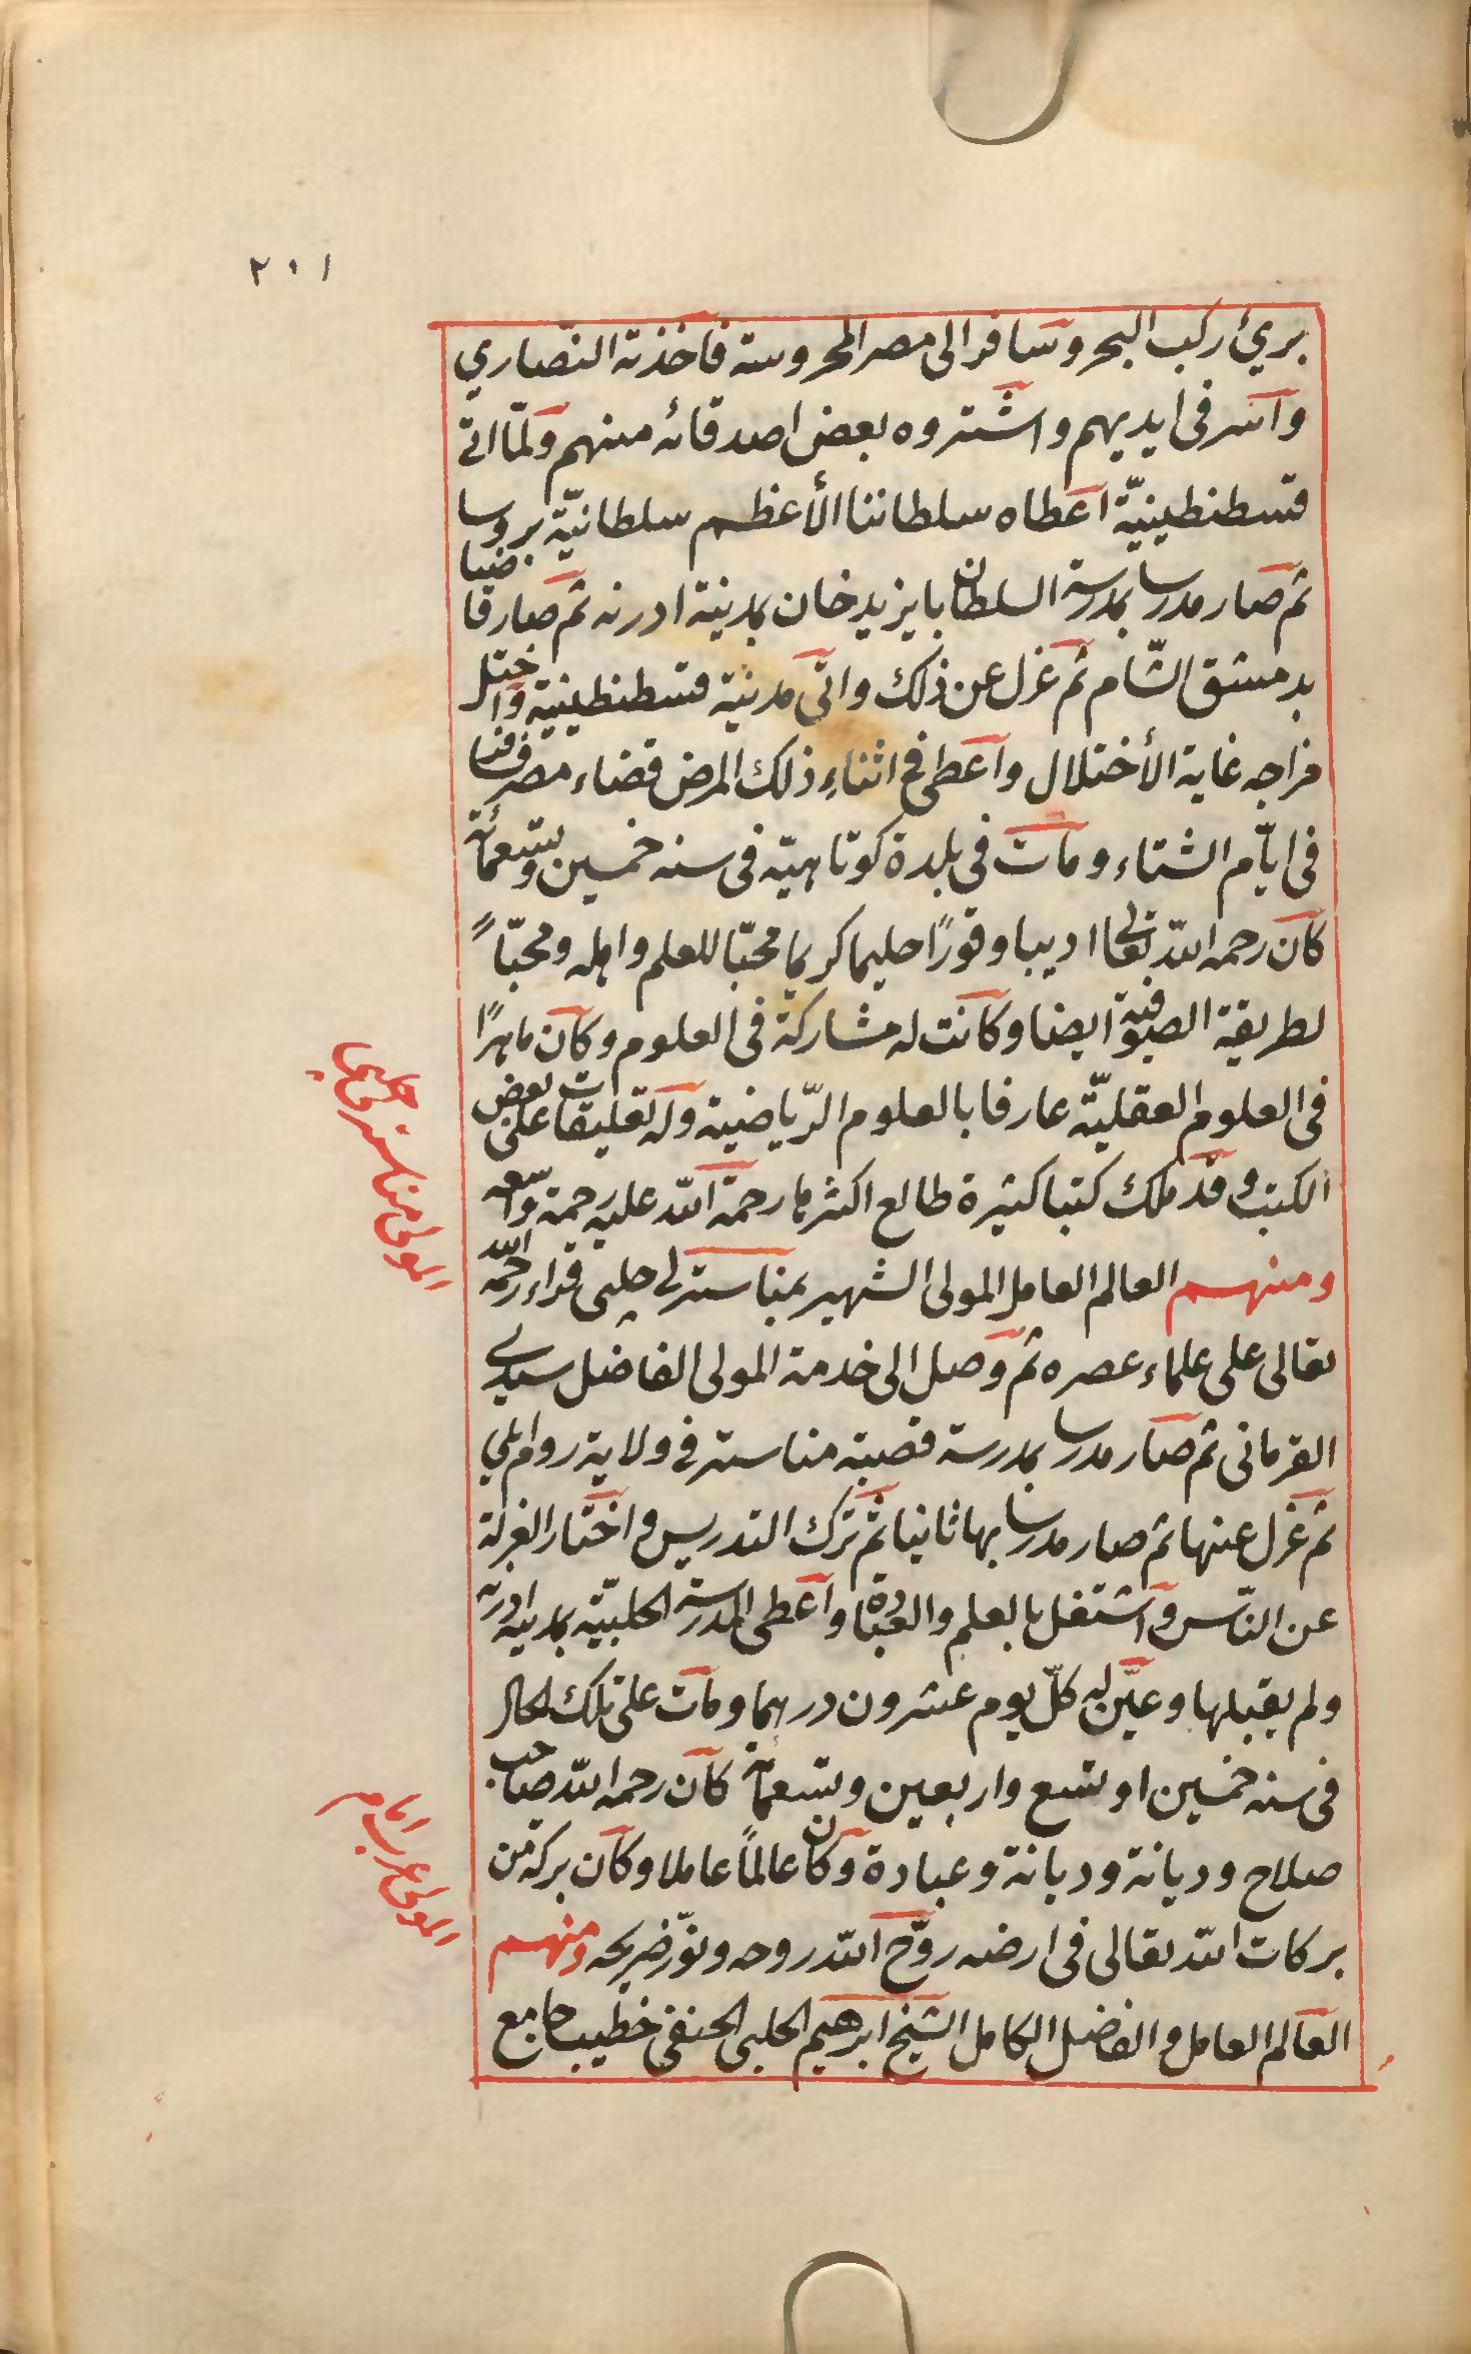 ٢٠١
بريئ ركب البحر وسافر الى مصر المحروسة فاخذته النصاري
واسر فى ايديهم واشتروه بعض اصدقائه منهم ولمّا اتى
قسطنطينيّة اعطاه سلطاننا الأعظم سلطانيّة بروسا
ثم صار مدرسا بمدرسة السلطان بايزيد خان بمدينة ادرنه ثم صار قاضيا
بدمشق الشّام ثم عزل عن ذلك واتى مدينة قسطنطينية واختل
مزاجه غاية الأختلال واعطى فى اثناءِ ذلك المرض قضاء مصر فسافر
فى ايّام الشتاء ومات فى بلدة كوتاهيّه فى سنه خمسين وتسعمائة
كان رحمه اللّه تعالى اديبا وقورًا حليما كريما محبّا للعلم واهله ومحبّاً
لطريقة الصوفية ايضا وكانت له مشاركة فى العلوم وكان ماهرًا
فى العلوم العقليّة عارفا بالعلوم الرّياضية وله تعليقات على بعض
الكتب وقد ملك كتبا كثيرة طالع اكثرها رحمة اللّه عليه رحمة واسعه
ومنهم العالم العامل المولى الشهير بمناسترلى چلبى قراء رحمه اللّه
تعالى على علماء عصره ثم وصل الى خدمة المولى الفاضل سيدى
القرمانى ثم صار مدرسا بمدرسة قصبة مناستر فى ولاية روم ايلي
ثم عزل عنها ثم صار مدرسا بها ثانيا ثم ترك التدريس واختار العزلة
عن النّاس واشتغل بالعلم والعبادة واعطى المدرسة الحلبيّه بمدينه ادرنه
ولم يقبلها وعيّن له كلّ يوم عشرون درهما ومات على تلك الحال
فى سنه خمسين او تسع واربعين وتسعمائة كان رحمه اللّه صاحب
صلاح وديانة وديانة وعبادة وكان عالمًا عاملا وكان بركة من
بركات اللّه تعالى فى ارضه روّح اللّه روحه ونوّر ضريحه ومنهم
العالم العامل والفاضل الكامل الشيخ ابرهيم الحلبى الحنفى خطيب جامع
المولى مناسترلى چلبى
المولى عرب امام